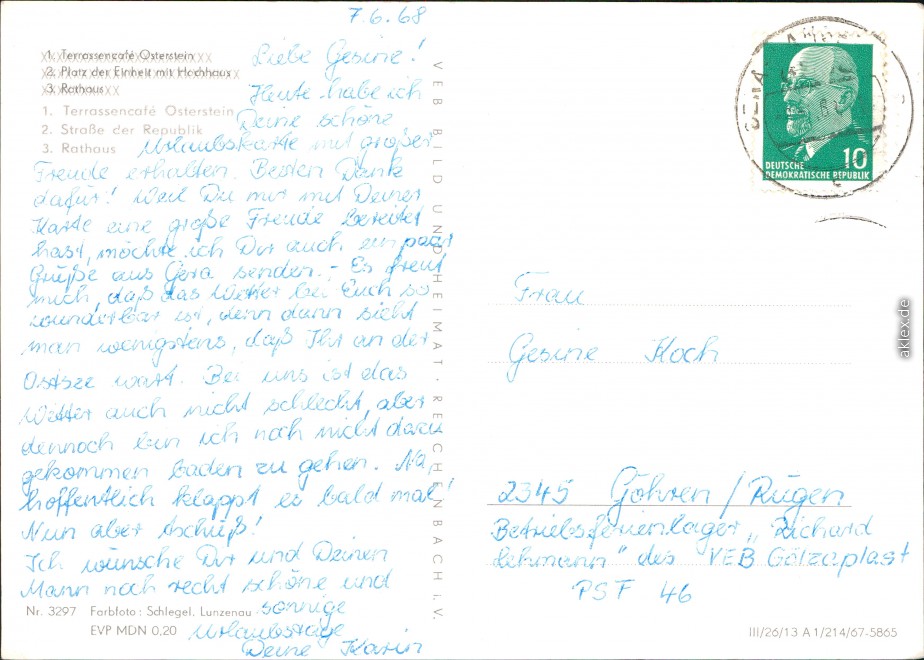 7.6.68
Liebe Gesine!
Heute habe ich
Deine schöne
Urlaubskarte mit großer
Freude erhalten. Besten Dank
dafür! Weil Du mir mit Deiner
Karte eine große Freude bereitet
hast, möchte ich Dir auch ein paar
Grüße aus Gera senden. - Es freut
mich, daß das Wetter bei Euch so
wunderbar ist, denn dann sieht
man wenigstens, daß Ihr an der
Ostsee wart. Bei uns ist das
Wetter auch nicht schlecht, aber
dennoch bin ich noch nicht dazu
gekommen baden zu gehen. Na,
hoffentlich klappt es bald mal!
Nun aber tschüß!
Ich wünsche Dir und Deinen
Mann noch recht schöne und
sonnige
Urlaubstage
Deine Karin
1. Terrassencafé Osterstein
2. Platz der Einheit mit Hochhaus
3. Rathaus
1. Terrassencafé Osterstein
2. Straße der Republik
3. Rathaus
VEB BILD UND HEIMAT · REICHENBACH I. V.
Nr. 3297 Farbfoto: Schlegel, Lunzenau
EVP MDN 0,20
10
DEUTSCHE
DEMOKRATISCHE REPUBLIK
Frau
Gesine Koch
2345 Göhren / Rügen
Betriebsferienlager „Richard
Lehmann" des VEB Gölzaplast
PSF 46
III/26/13 A 1/214/67-5865
aklex.de